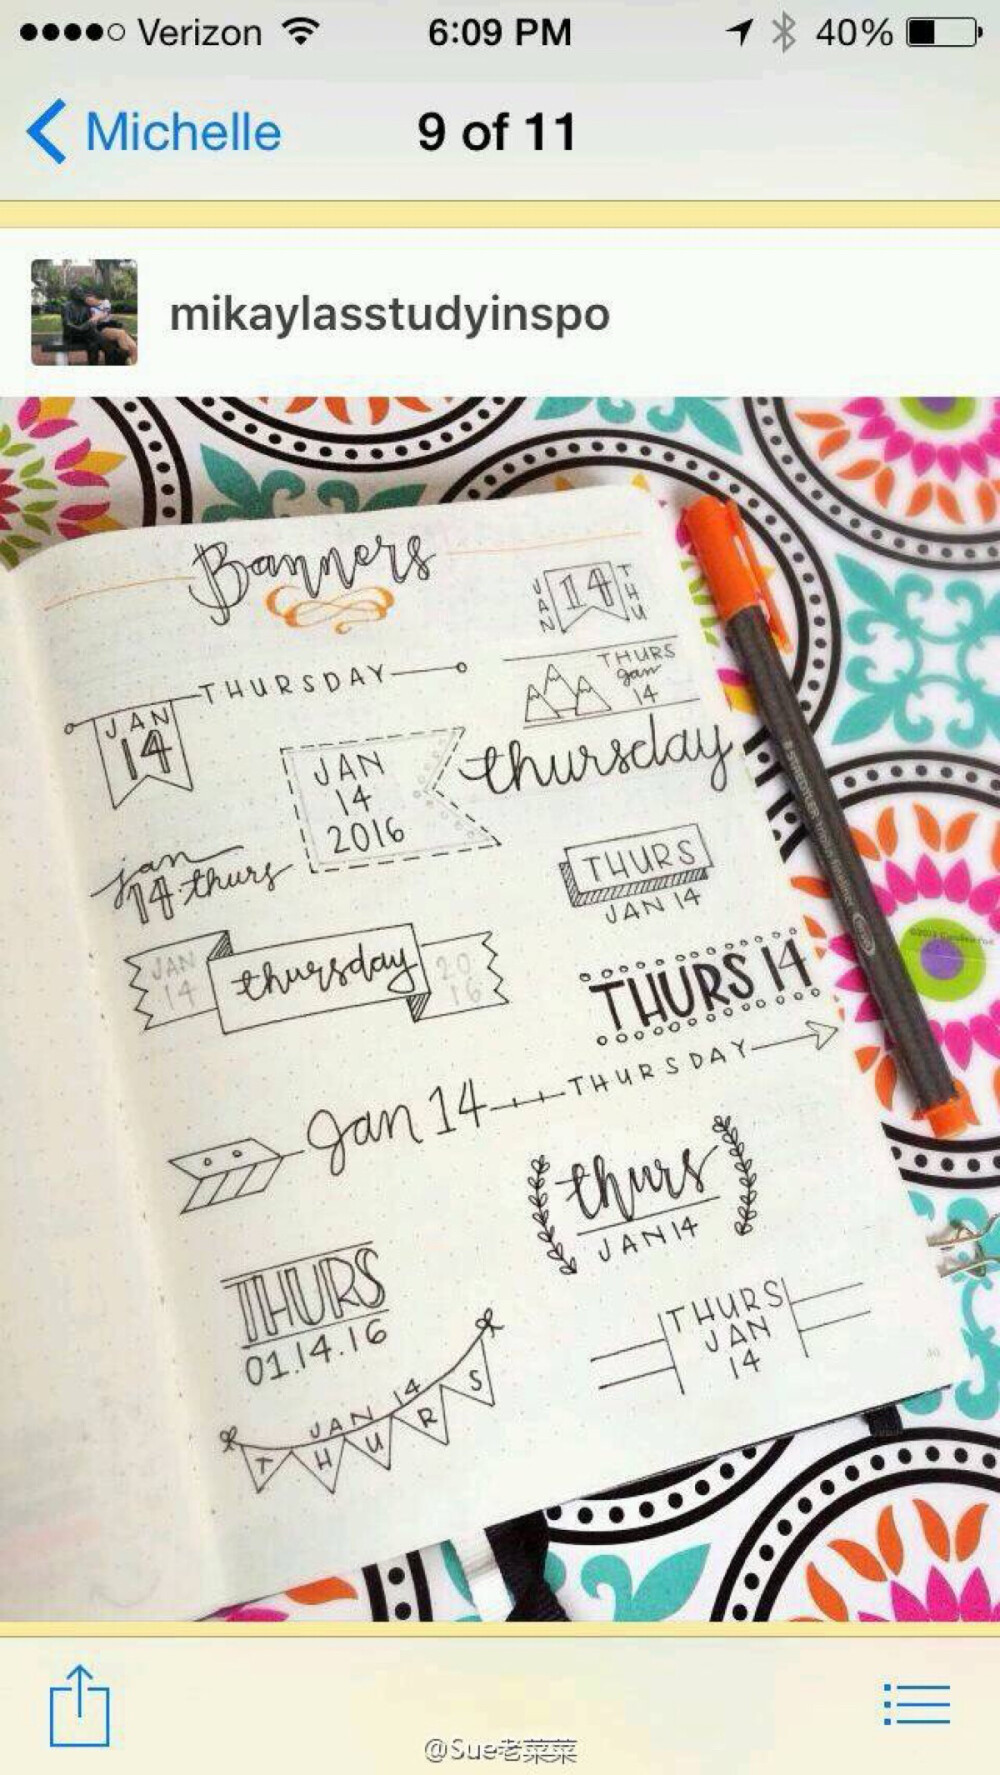 Verizon 6:09 PM 40%
Michelle 9 of 11
mikaylasstudyinspo
Banners
JAN 14 THU
THURSDAY
JAN
14
THURS
jan
14
JAN
14
2016
thursday
jan
14 thurs
THURS
JAN 14
JAN
14
thursday
20
16
THURS 14
Jan 14 THURSDAY
thurs
JAN 14
THURS
01.14.16
THURS
JAN
14
JAN 14
THURS
@Sue老菜菜